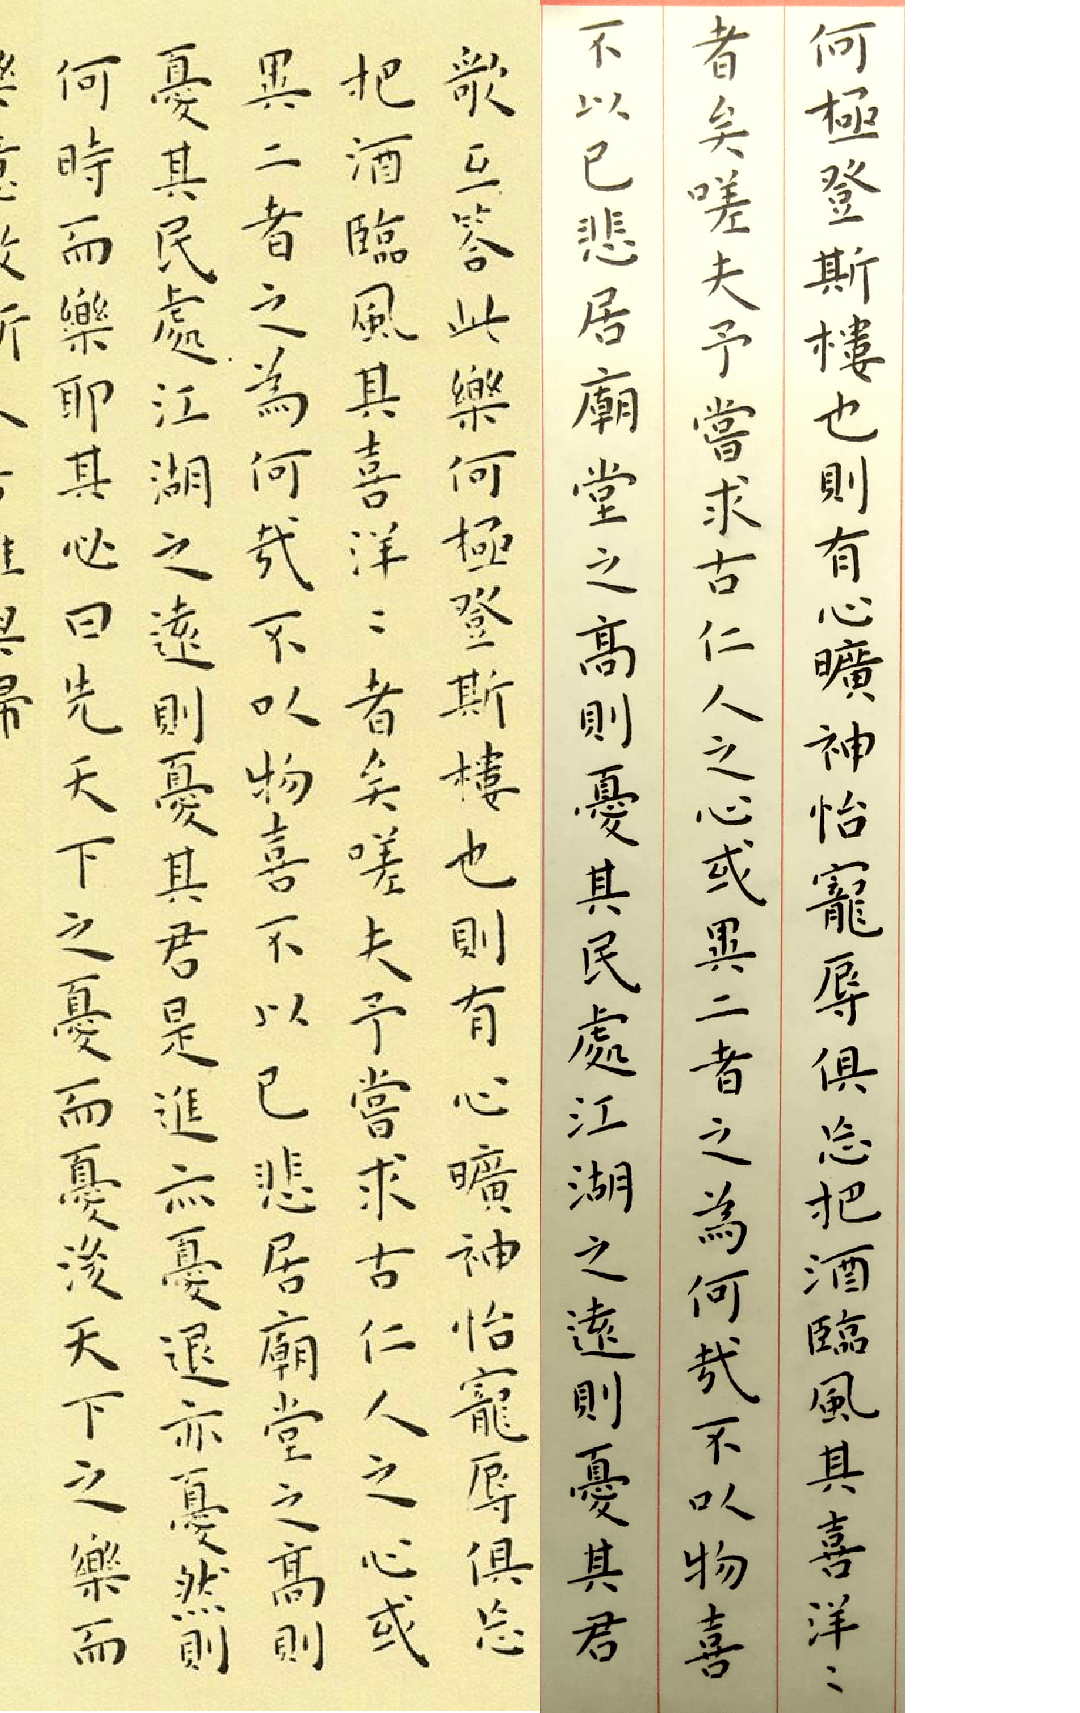 何極登斯樓也則有心曠神怡寵辱俱忘把酒臨風其喜洋〻
者矣嗟夫予嘗求古仁人之心或異二者之為何哉不以物喜
不以己悲居廟堂之高則憂其民處江湖之遠則憂其君
歌互答此樂何極登斯樓也則有心曠神怡寵辱俱忘
把酒臨風其喜洋〻者矣嗟夫予嘗求古仁人之心或
異二者之為何哉不以物喜不以己悲居廟堂之高則
憂其民處江湖之遠則憂其君是進亦憂退亦憂然則
何時而樂耶其必曰先天下之憂而憂後天下之樂而